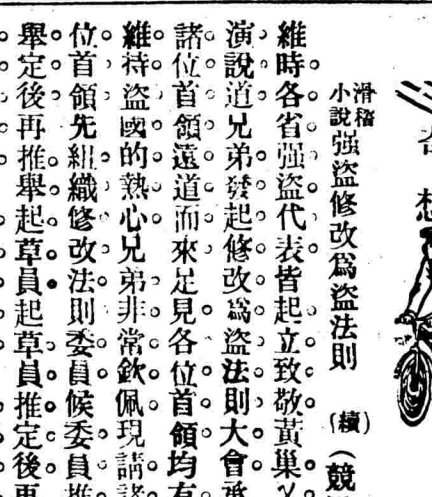 想
滑稽小說 强盜修改爲盜法則 (續) (競
維時各省强盜代表皆起立致敬黃巢
演說道兄弟發起修改爲盜法則大會承
諸位首領遠道而來足見各位首領均有
維持盜國的熱心兄弟非常欽佩現請諸
位首領先組織修改法則委員候委員推
舉定後再推舉起草員起草員推定後再